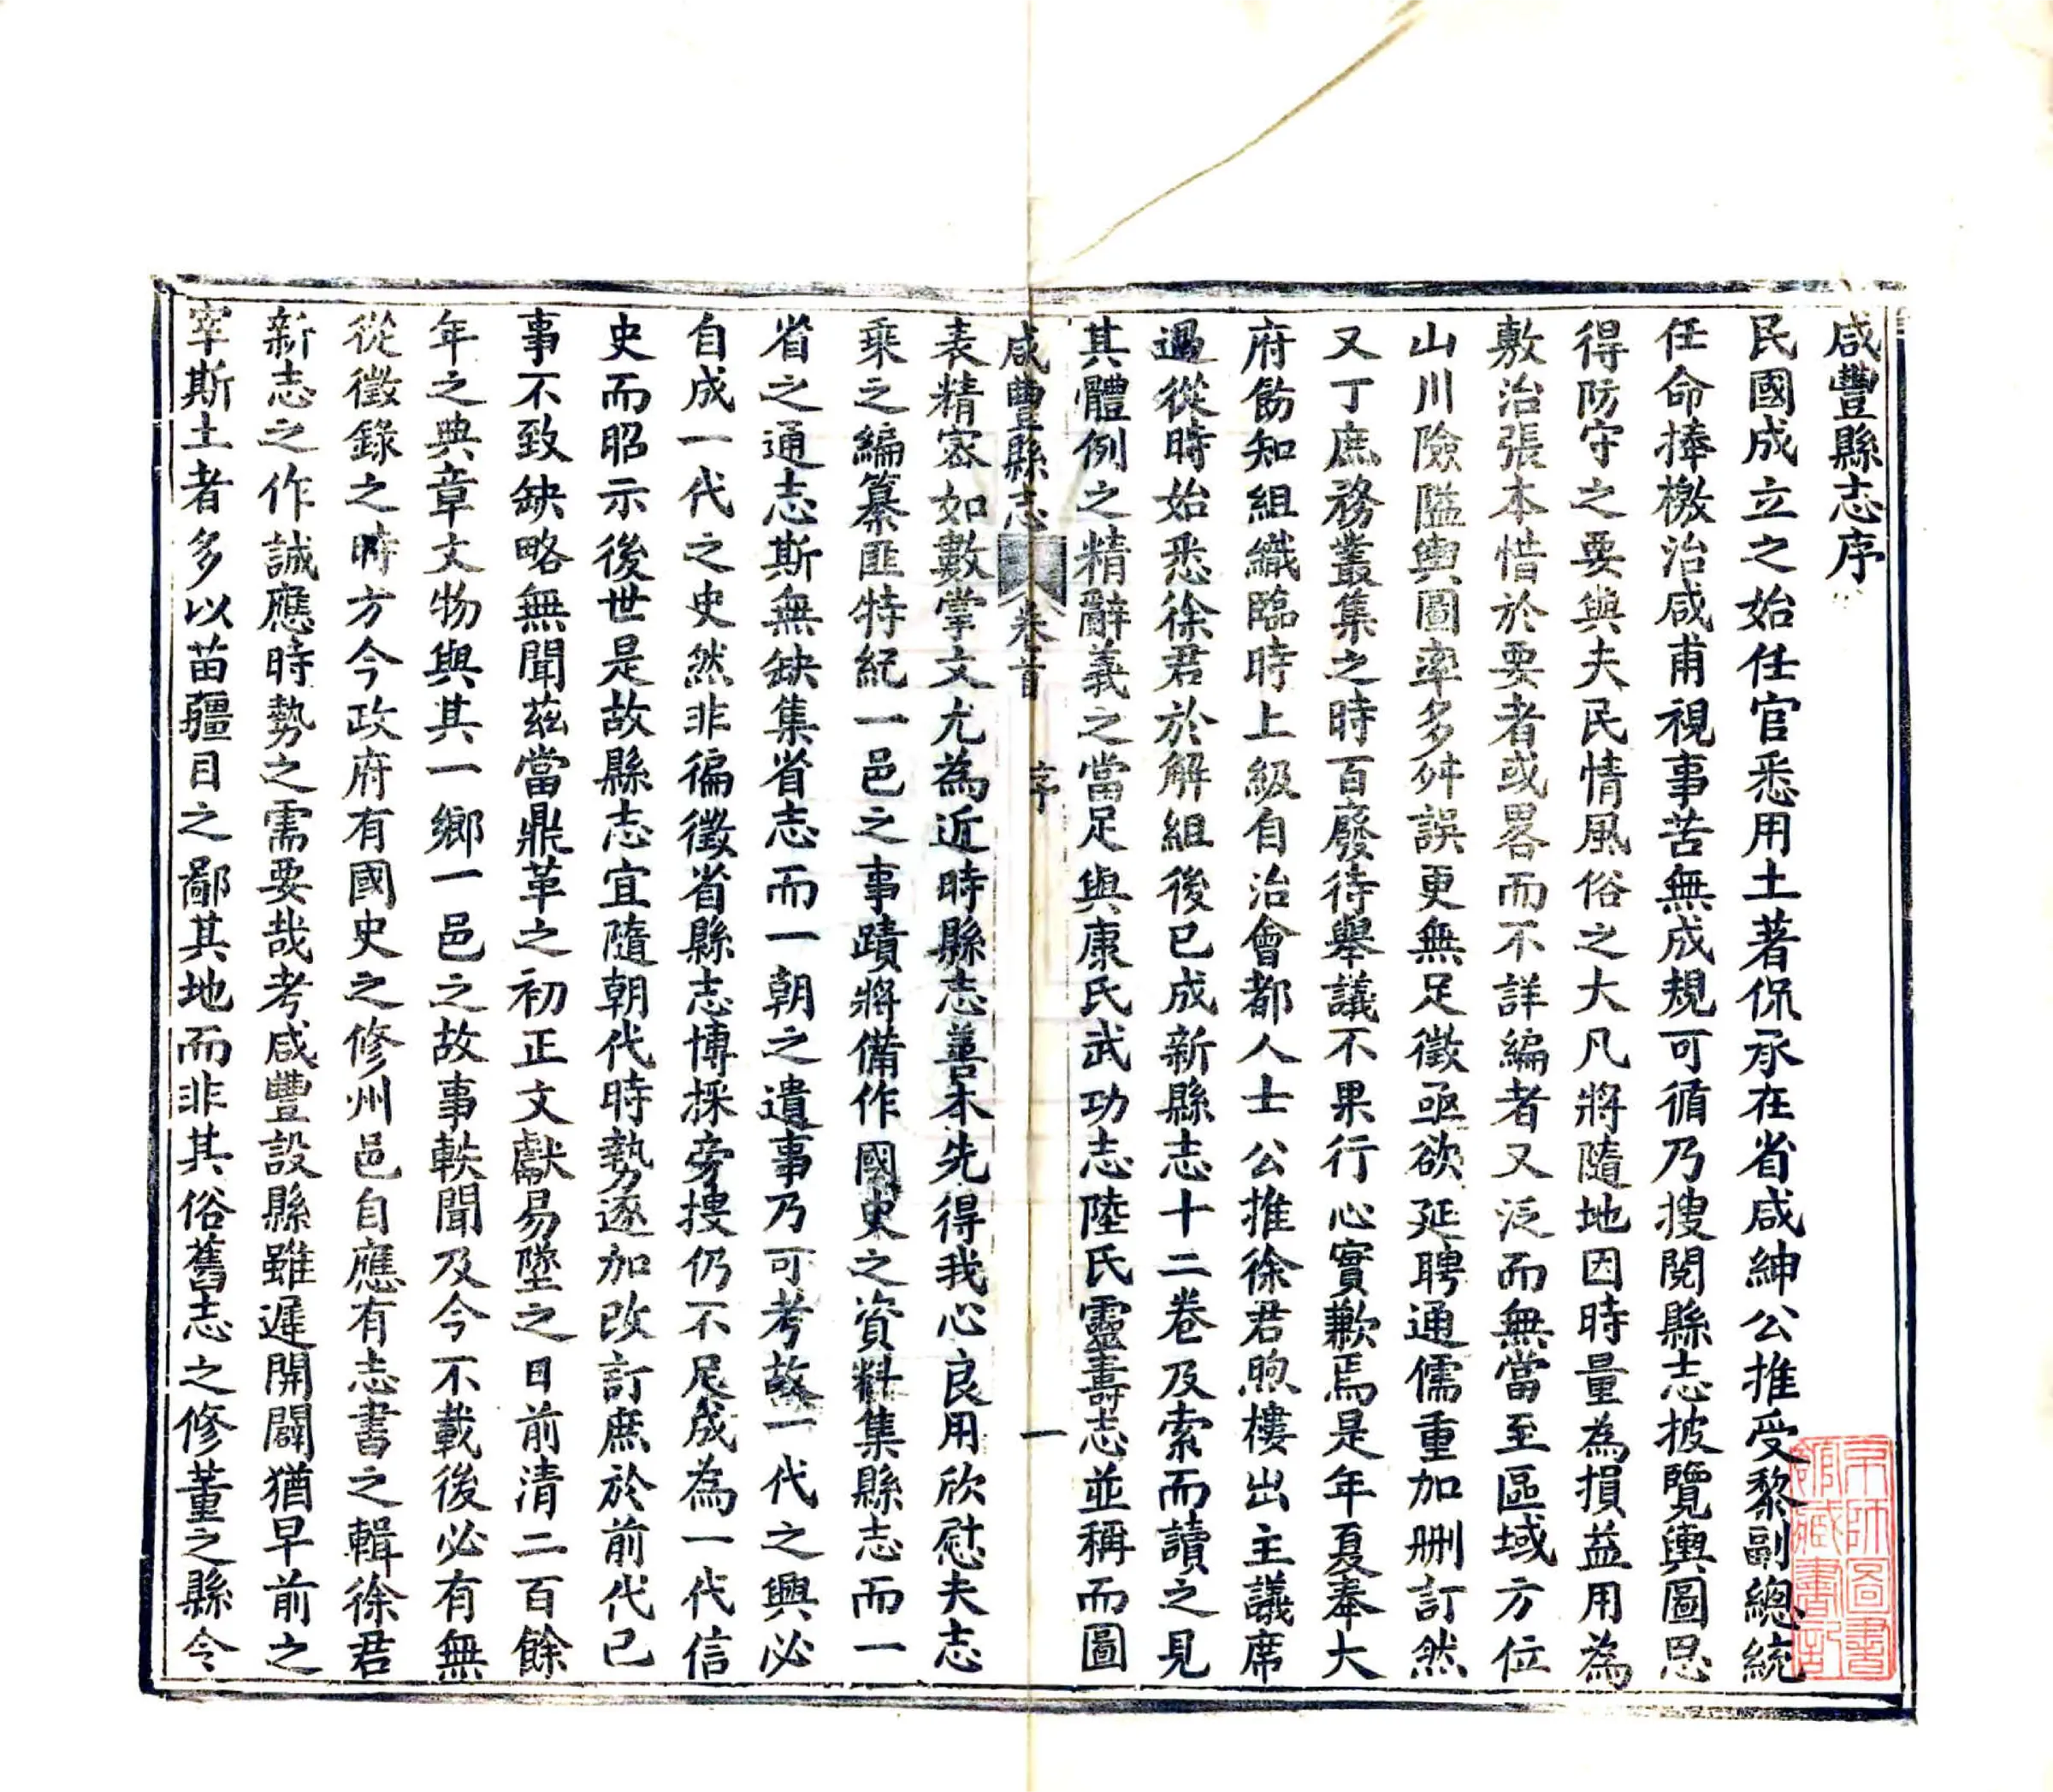 咸豐縣志序
民國成立之始任官悉用土著侃承在省咸紳公推受黎副總統
任命捧檄治咸甫視事苦無成規可循乃搜閱縣志披覽輿圖思
得防守之要與夫民情風俗之大凡將隨地因時量為損益用為
敷治張本惜於要者或畧而不詳編者又泛而無當至區域方位
山川險隘輿圖率多舛誤更無足徵亟欲延聘通儒重加刪訂然
又丁庶務叢集之時百廢待舉議不果行心實歉焉是年夏奉大
府飭知組織臨時上級自治會都人士公推徐君煦樓出主議席
過從時始悉徐君於解組後已成新縣志十二卷及索而讀之見
其體例之精辭義之當足與康氏武功志陸氏靈壽志並稱而圖
咸豐縣志 卷首 序 一
表精密如數掌文尤為近時縣志善本先得我心良用欣慰夫志
乘之編纂匪特紀一邑之事蹟將備作國史之資料集縣志而一
省之通志斯無缺集省志而一朝之遺事乃可考故一代之興必
自成一代之史然非徧徵省縣志博採旁搜仍不足成為一代信
史而昭示後世是故縣志宜隨朝代時勢逐加改訂庶於前代已
事不致缺略無聞茲當鼎革之初正文獻易墜之日前清二百餘
年之典章文物與其一鄉一邑之故事軼聞及今不載後必有無
從徵錄之時方今政府有國史之修州邑自應有志書之輯徐君
新志之作誠應時勢之需要哉考咸豐設縣雖遲開闢猶早前之
宰斯土者多以苗疆目之鄙其地而非其俗舊志之修董之縣令
京師圖書
館藏書記